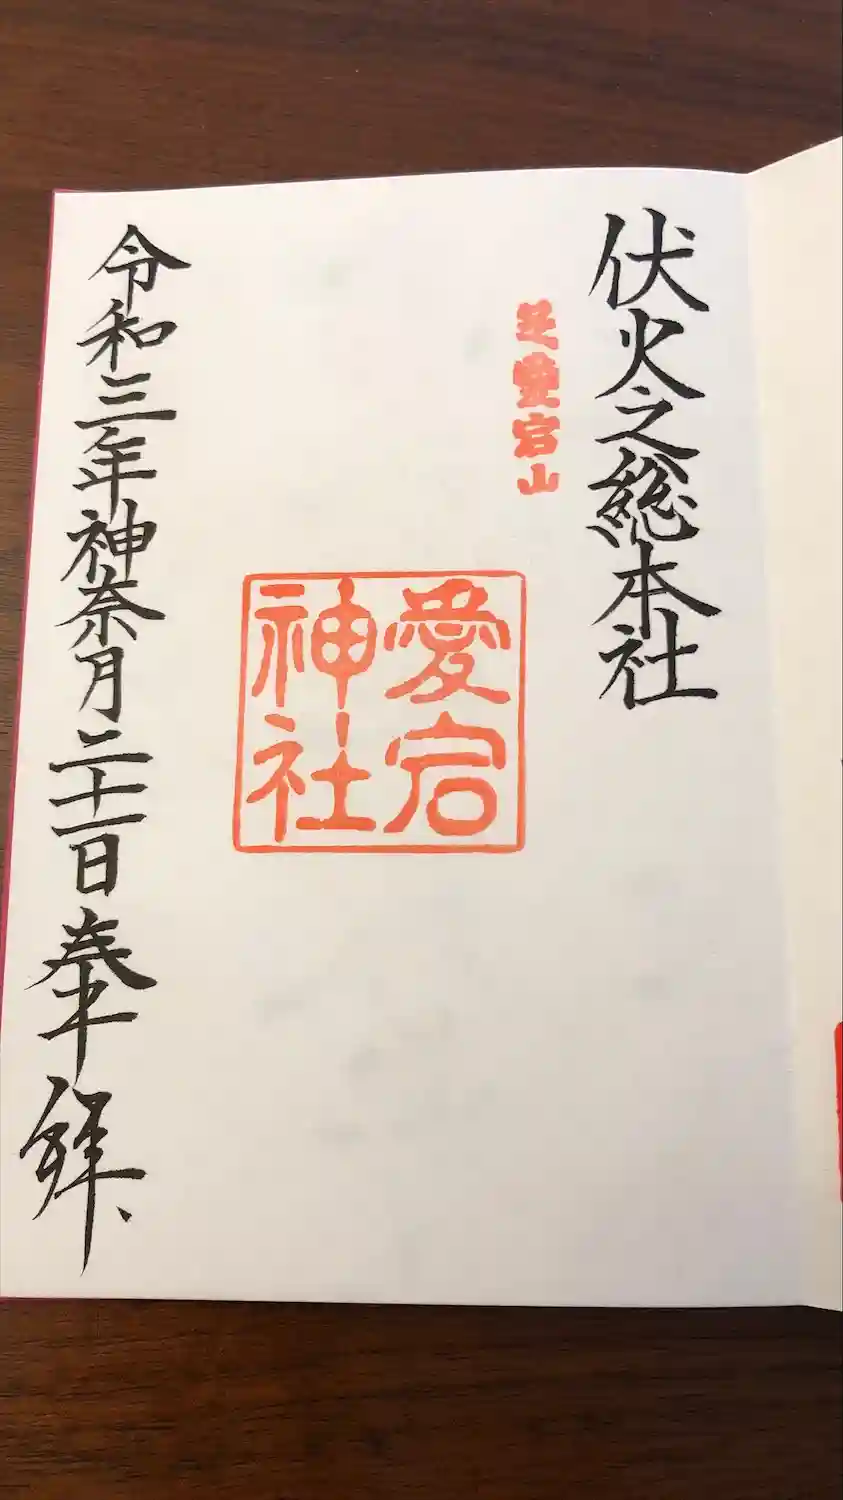 伏火之総本社
芝愛宕山
愛宕
神社
令和三年神奈月二十一日奉拝